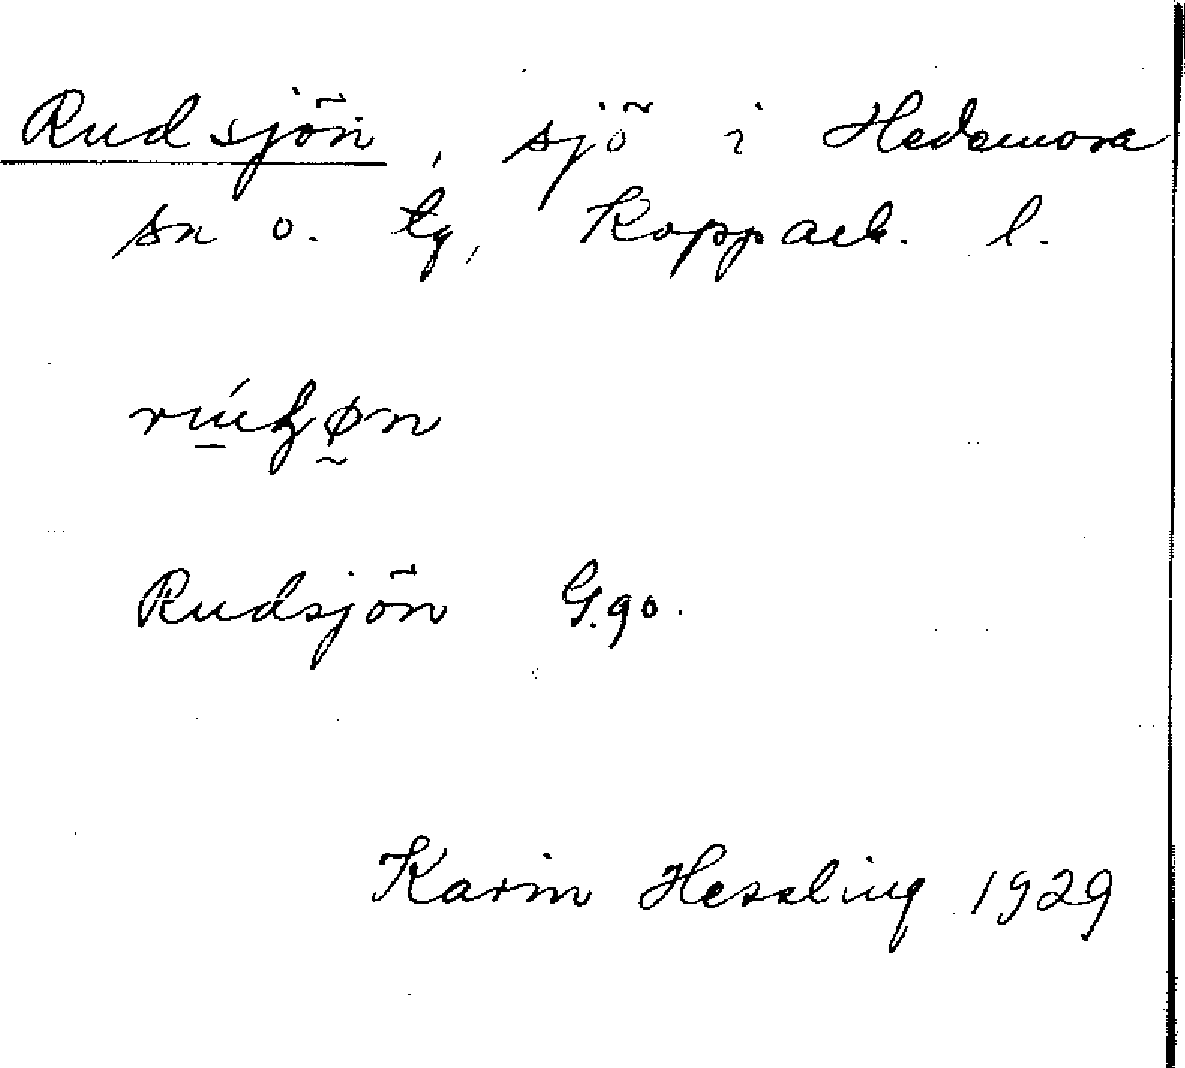 Rudsjön, sjö i Hedemora
sn o. tg, Kopparb. l.
Rudsjön G.go.
Karin Hessling 1929